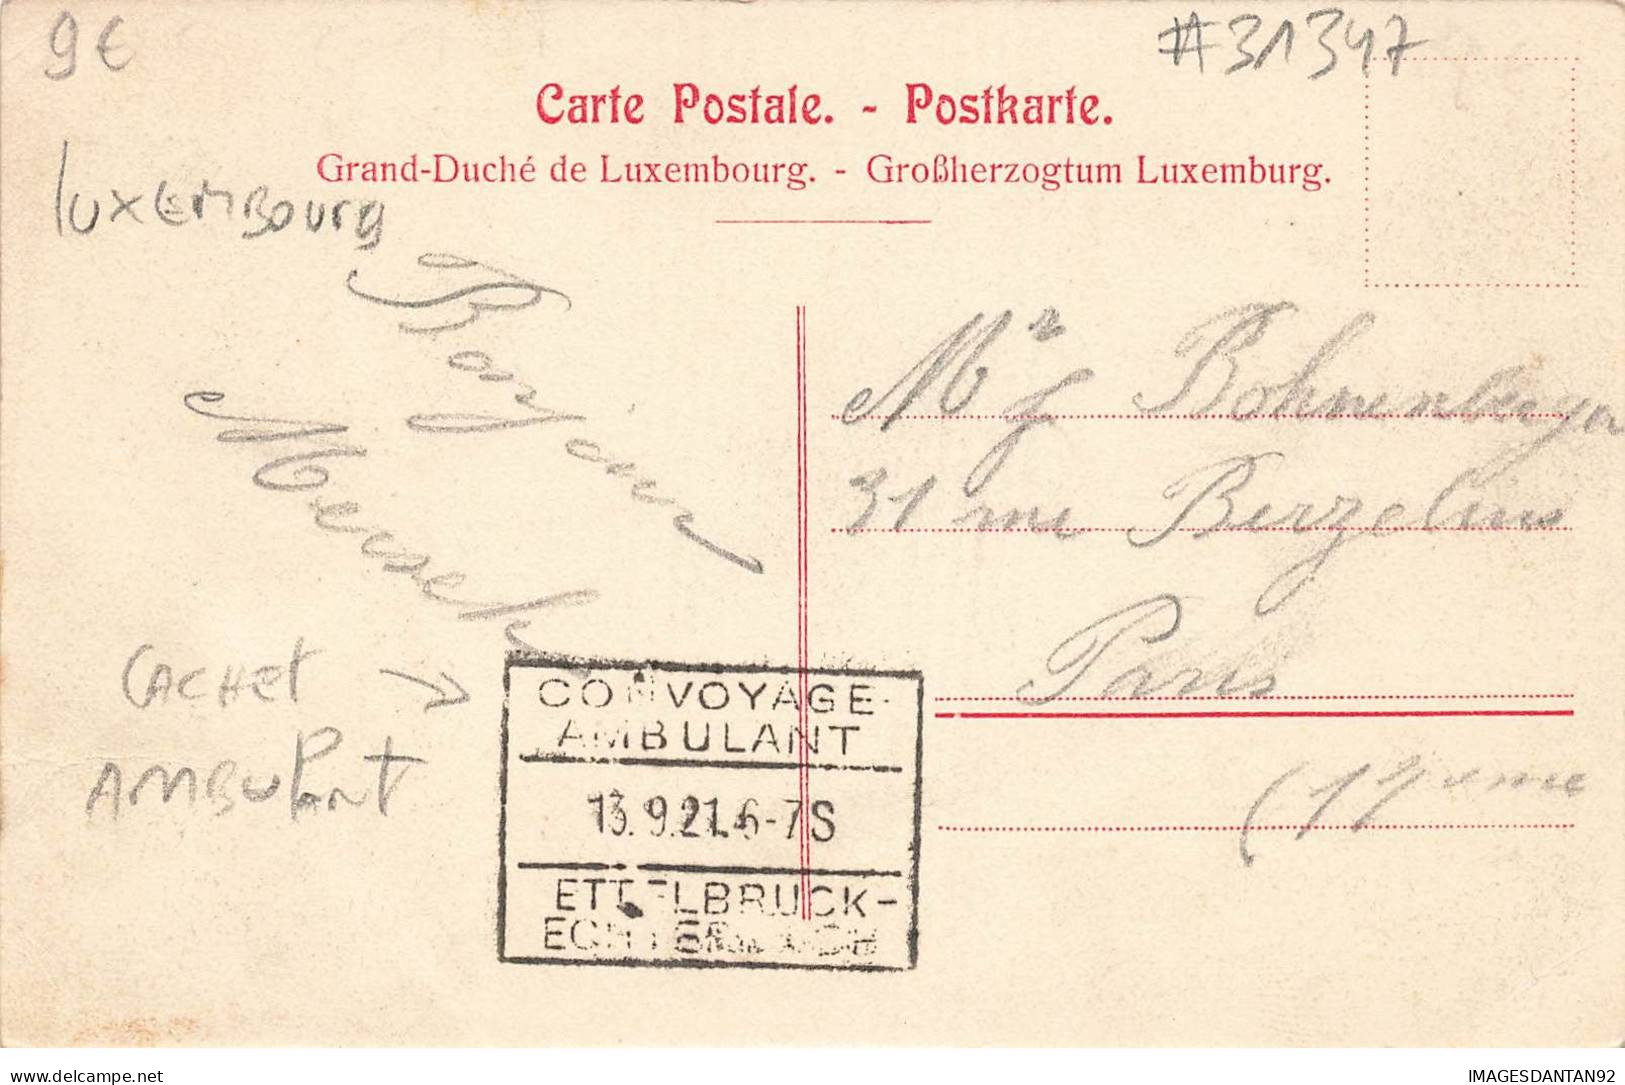 9€
#31347
Carte Postale. - Postkarte.
Grand-Duché de Luxembourg. - Großherzogtum Luxemburg.
Luxembourg
Bonjour
Mersch
Mr J Bohnenberger
31 rue Berzelius
Paris
(17eme
Cachet
Ambulant
CONVOYAGE-
AMBULANT
13.9.21.6-7S
ETTELBRUCK-
ECHTERNACH
delcampe.net
IMAGESDANTAN92